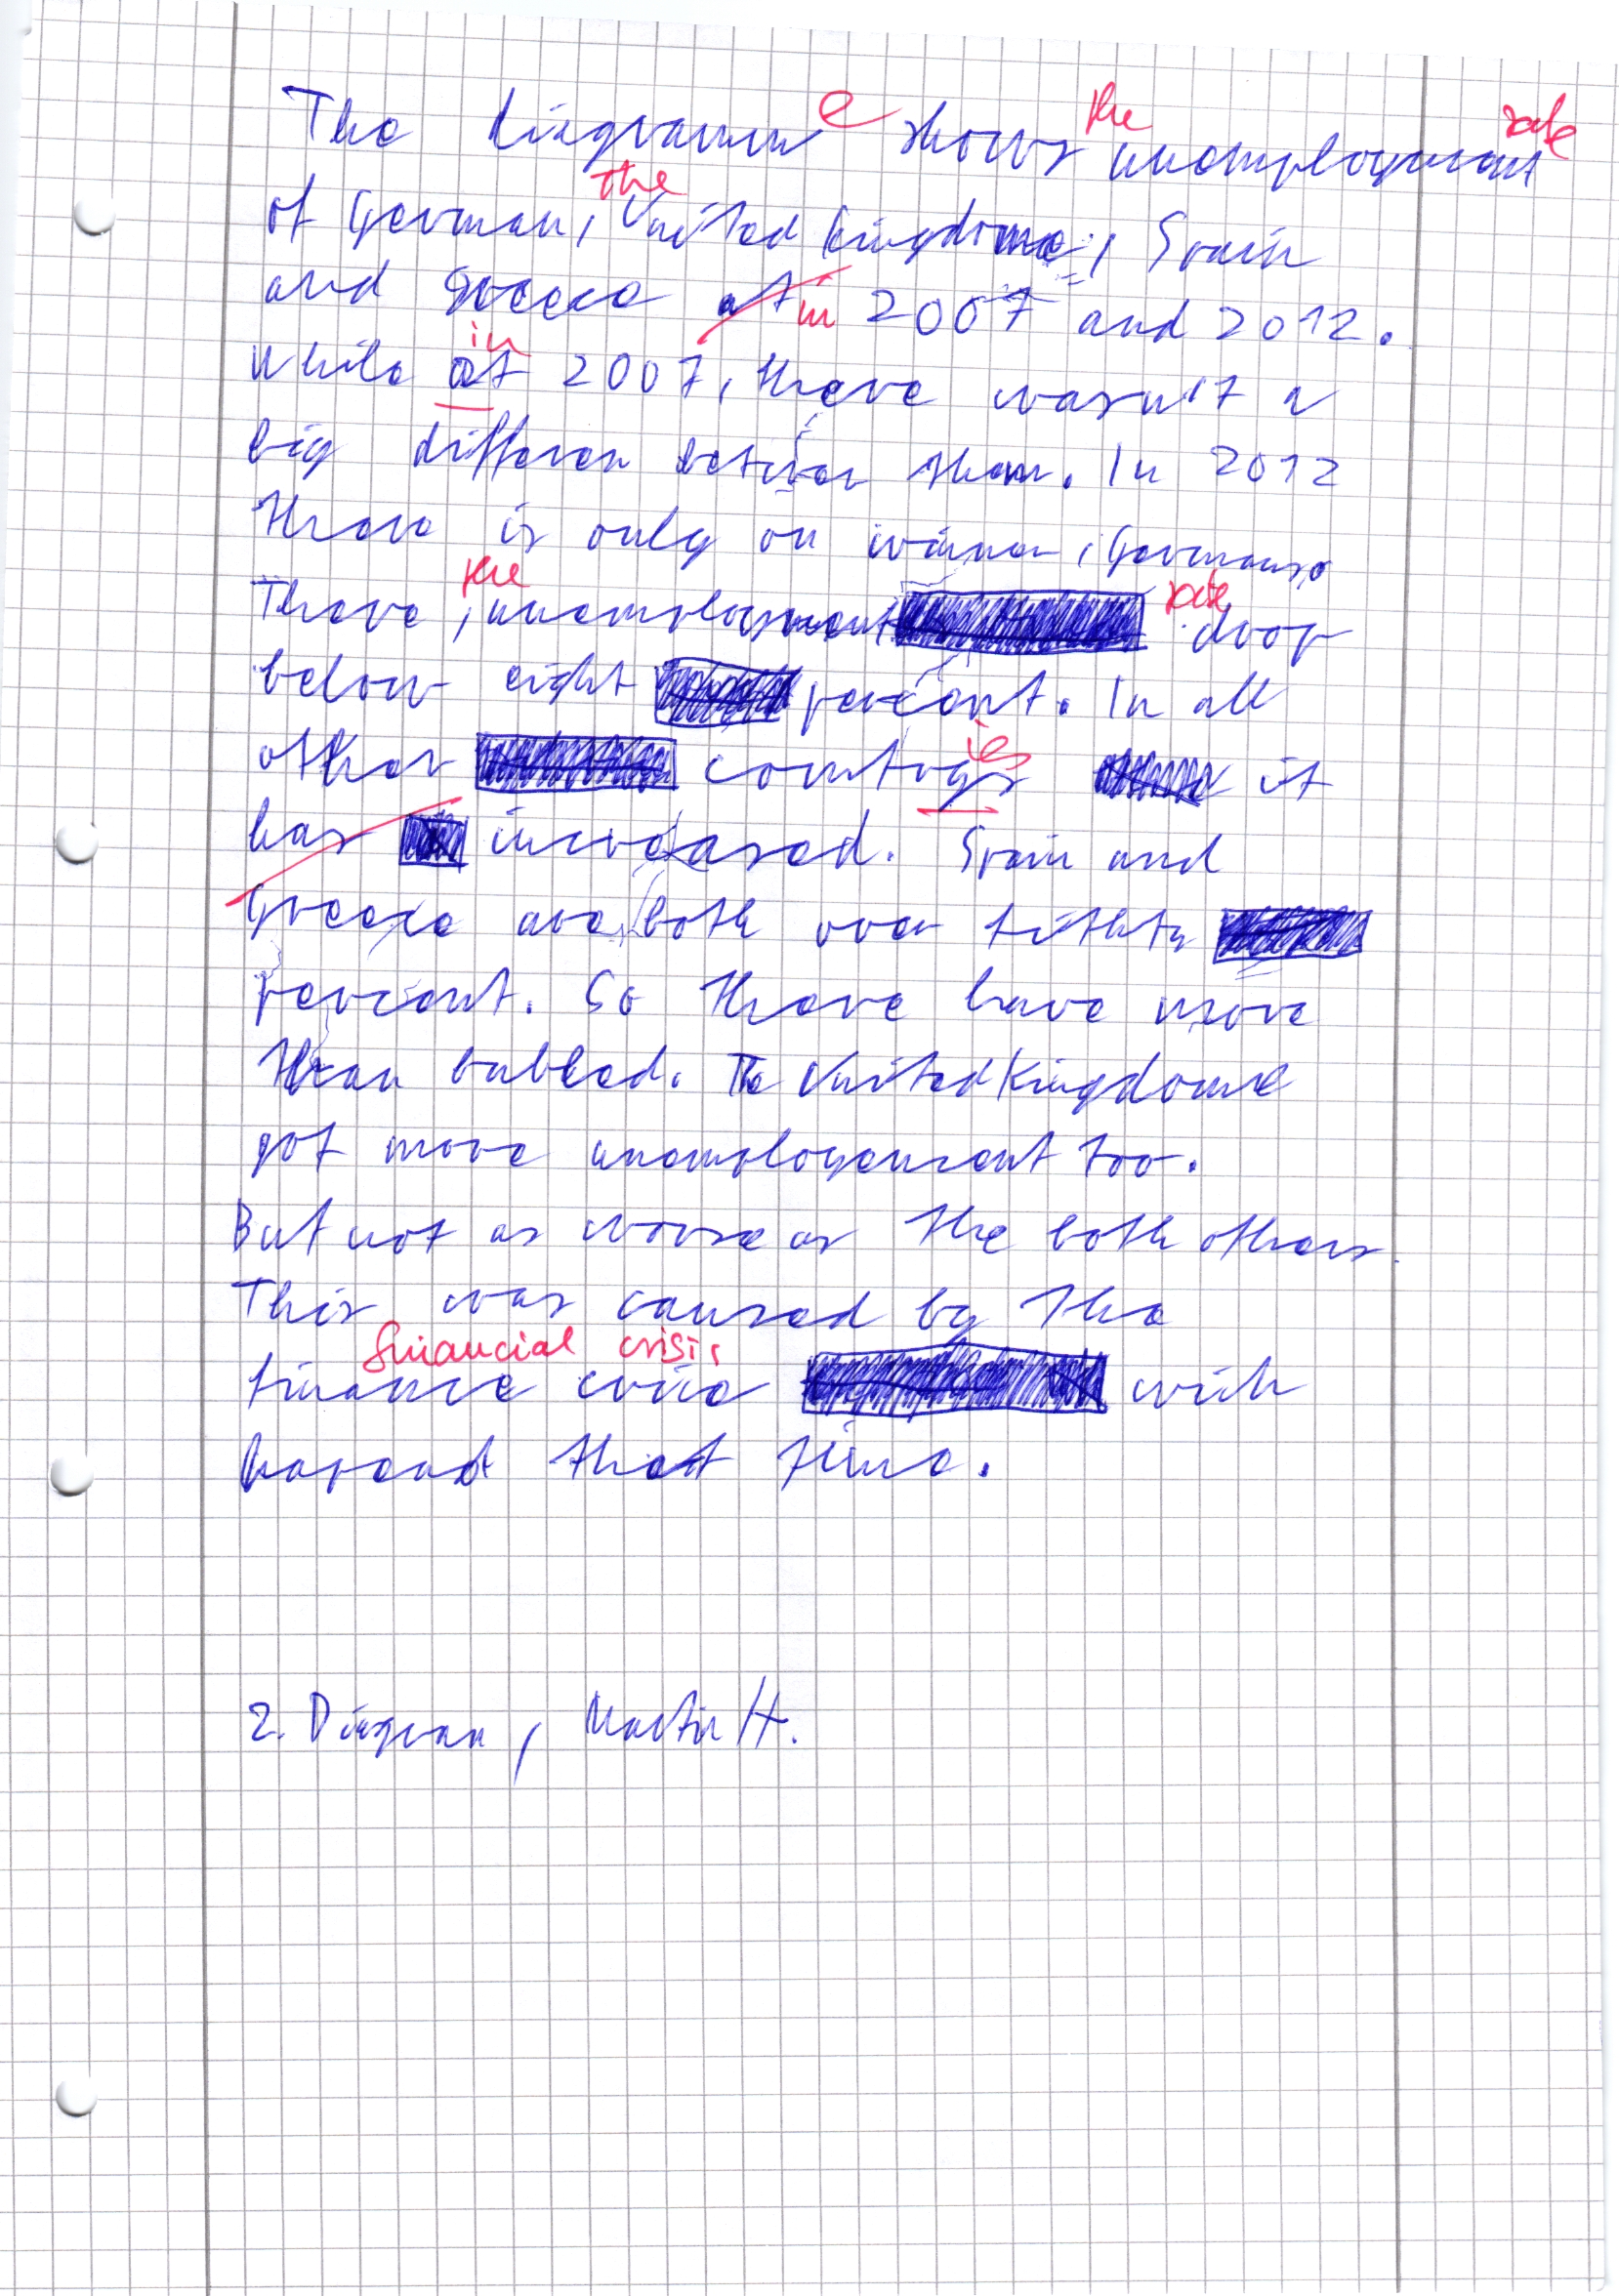 The diagramm e shows the unemployement rate
of German, the United Kingdome, Spain
and Greece at in 2007 and 2012.
While at in 2007, there wasn't a
big differen between them. In 2012
there is only on winner, Germany.
There, the unemployment rate droop
below eight percent. In all
other countrys ies it
has increased. Spain and
Greece are both over
percent. So there have more
than bubled. The United Kingdome
got more unemployement too.
But not as worse as the both others.
This was caused by the
financial crisis
finance crise wich
that time.
2. Diagram, Martin H.